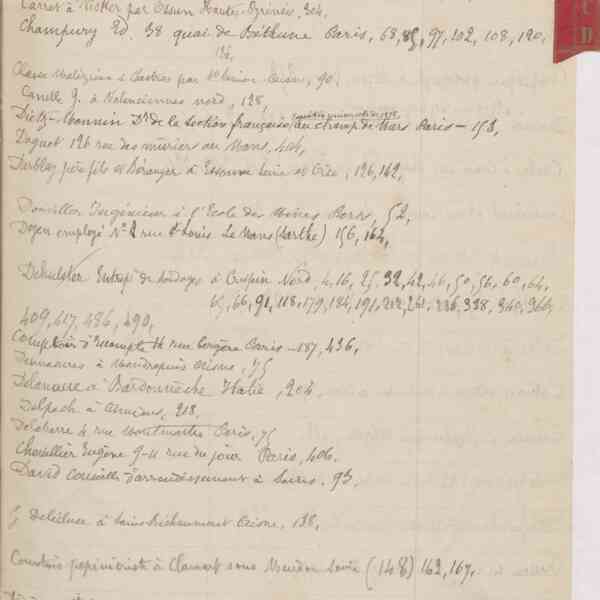 Carret à Viskor par Ossun Hautes-Pyrénées, 304.
Champury Ed. 38 quai de Béthune Paris, 68, 85, 97, 102, 108, 190,
à Castres par 90.
Canelle G. à Valenciennes nord, 128,
Dietz-Monnin Dr de la section française au champ de Mars Paris - 158,
Doguet 126 rue des muriers au Mans, 404,
Derblay père fils et Béranger à Essonne Seine et Oise, 126, 142,
Ingénieur à l'Ecole des Mines Paris, 52,
Doyen employé No 2 rue St Louis Le Mans (Sarthe) 156, 164,
Dehulster Entrepr de sondages à Crespin Nord, 4, 16, 25, 32, 42, 46, 50, 56, 60, 64,
65, 66, 91, 118, 179, 184, 191, 338, 340, 366,
409, 417, 486, 490,
Comptoir d'Escompte 14 rue bergère Paris - 187, 436,
à Aisne, 75
Delamare à Bardonnèche Italie, 204
Delpech à Amiens, 218,
Delabarre 4 rue Montmartre Paris, 75
Chevillier Eugène 9-11 rue du jour Paris, 406.
David conseiller d'arrondissement à 93,
Deléluse à Aisne, 138,
Courtois pépiniériste à Clamart sous Meudon Seine (148) 162, 167,